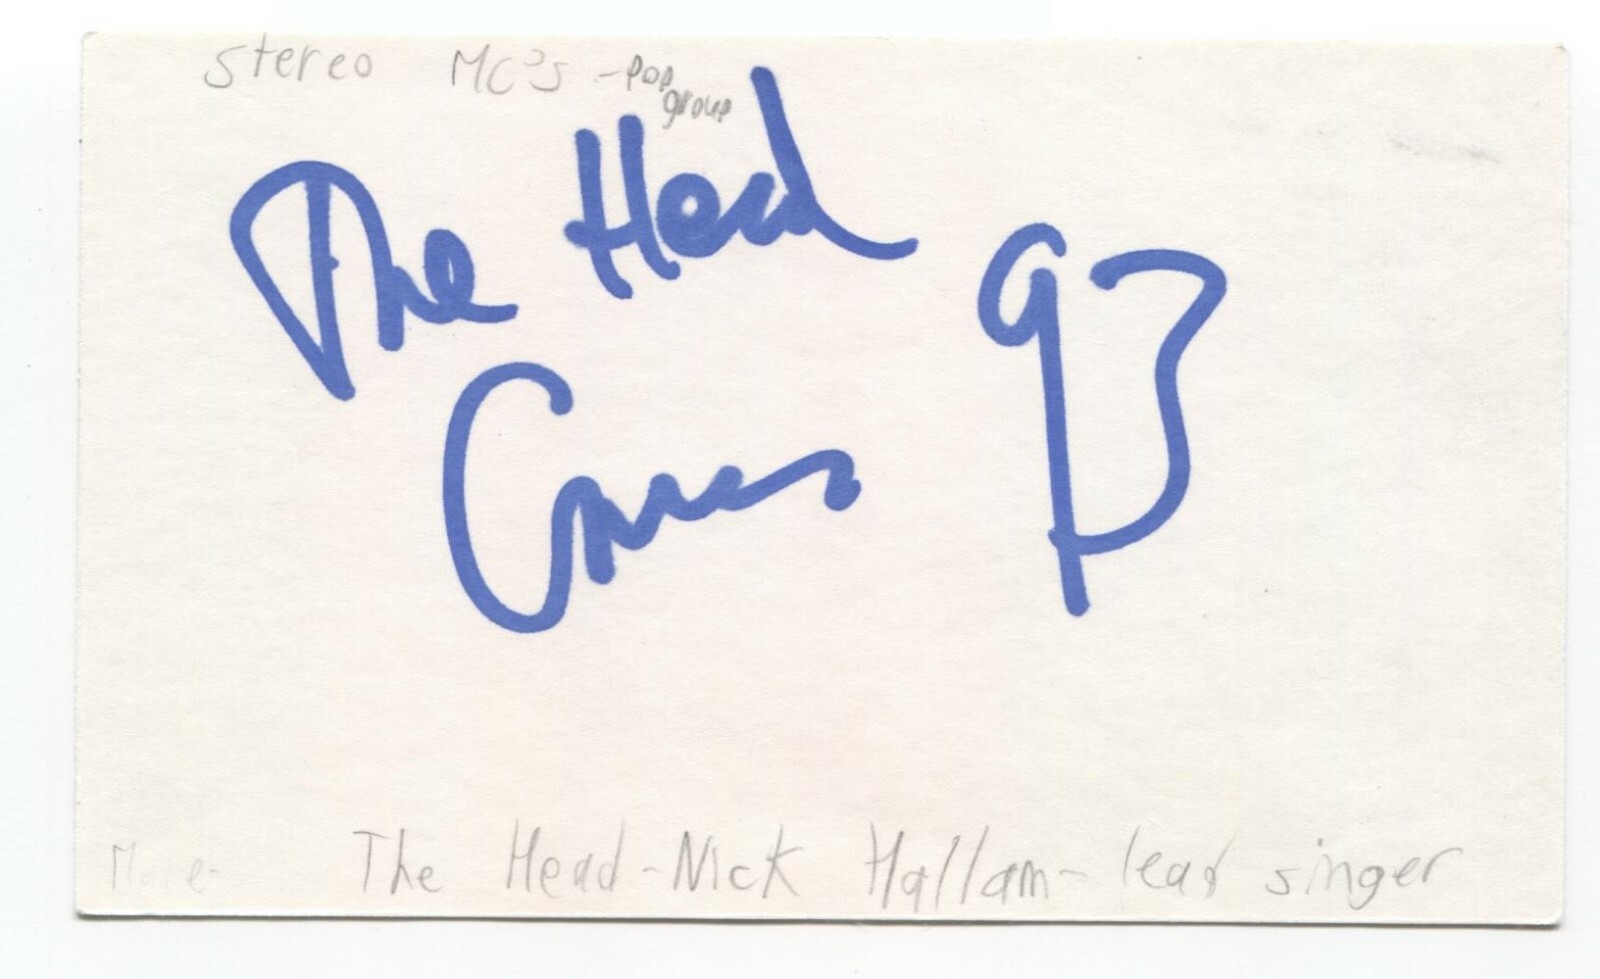 stereo MC's - pop
group
The Head 93
The Head - Nick Hallam - lead singer